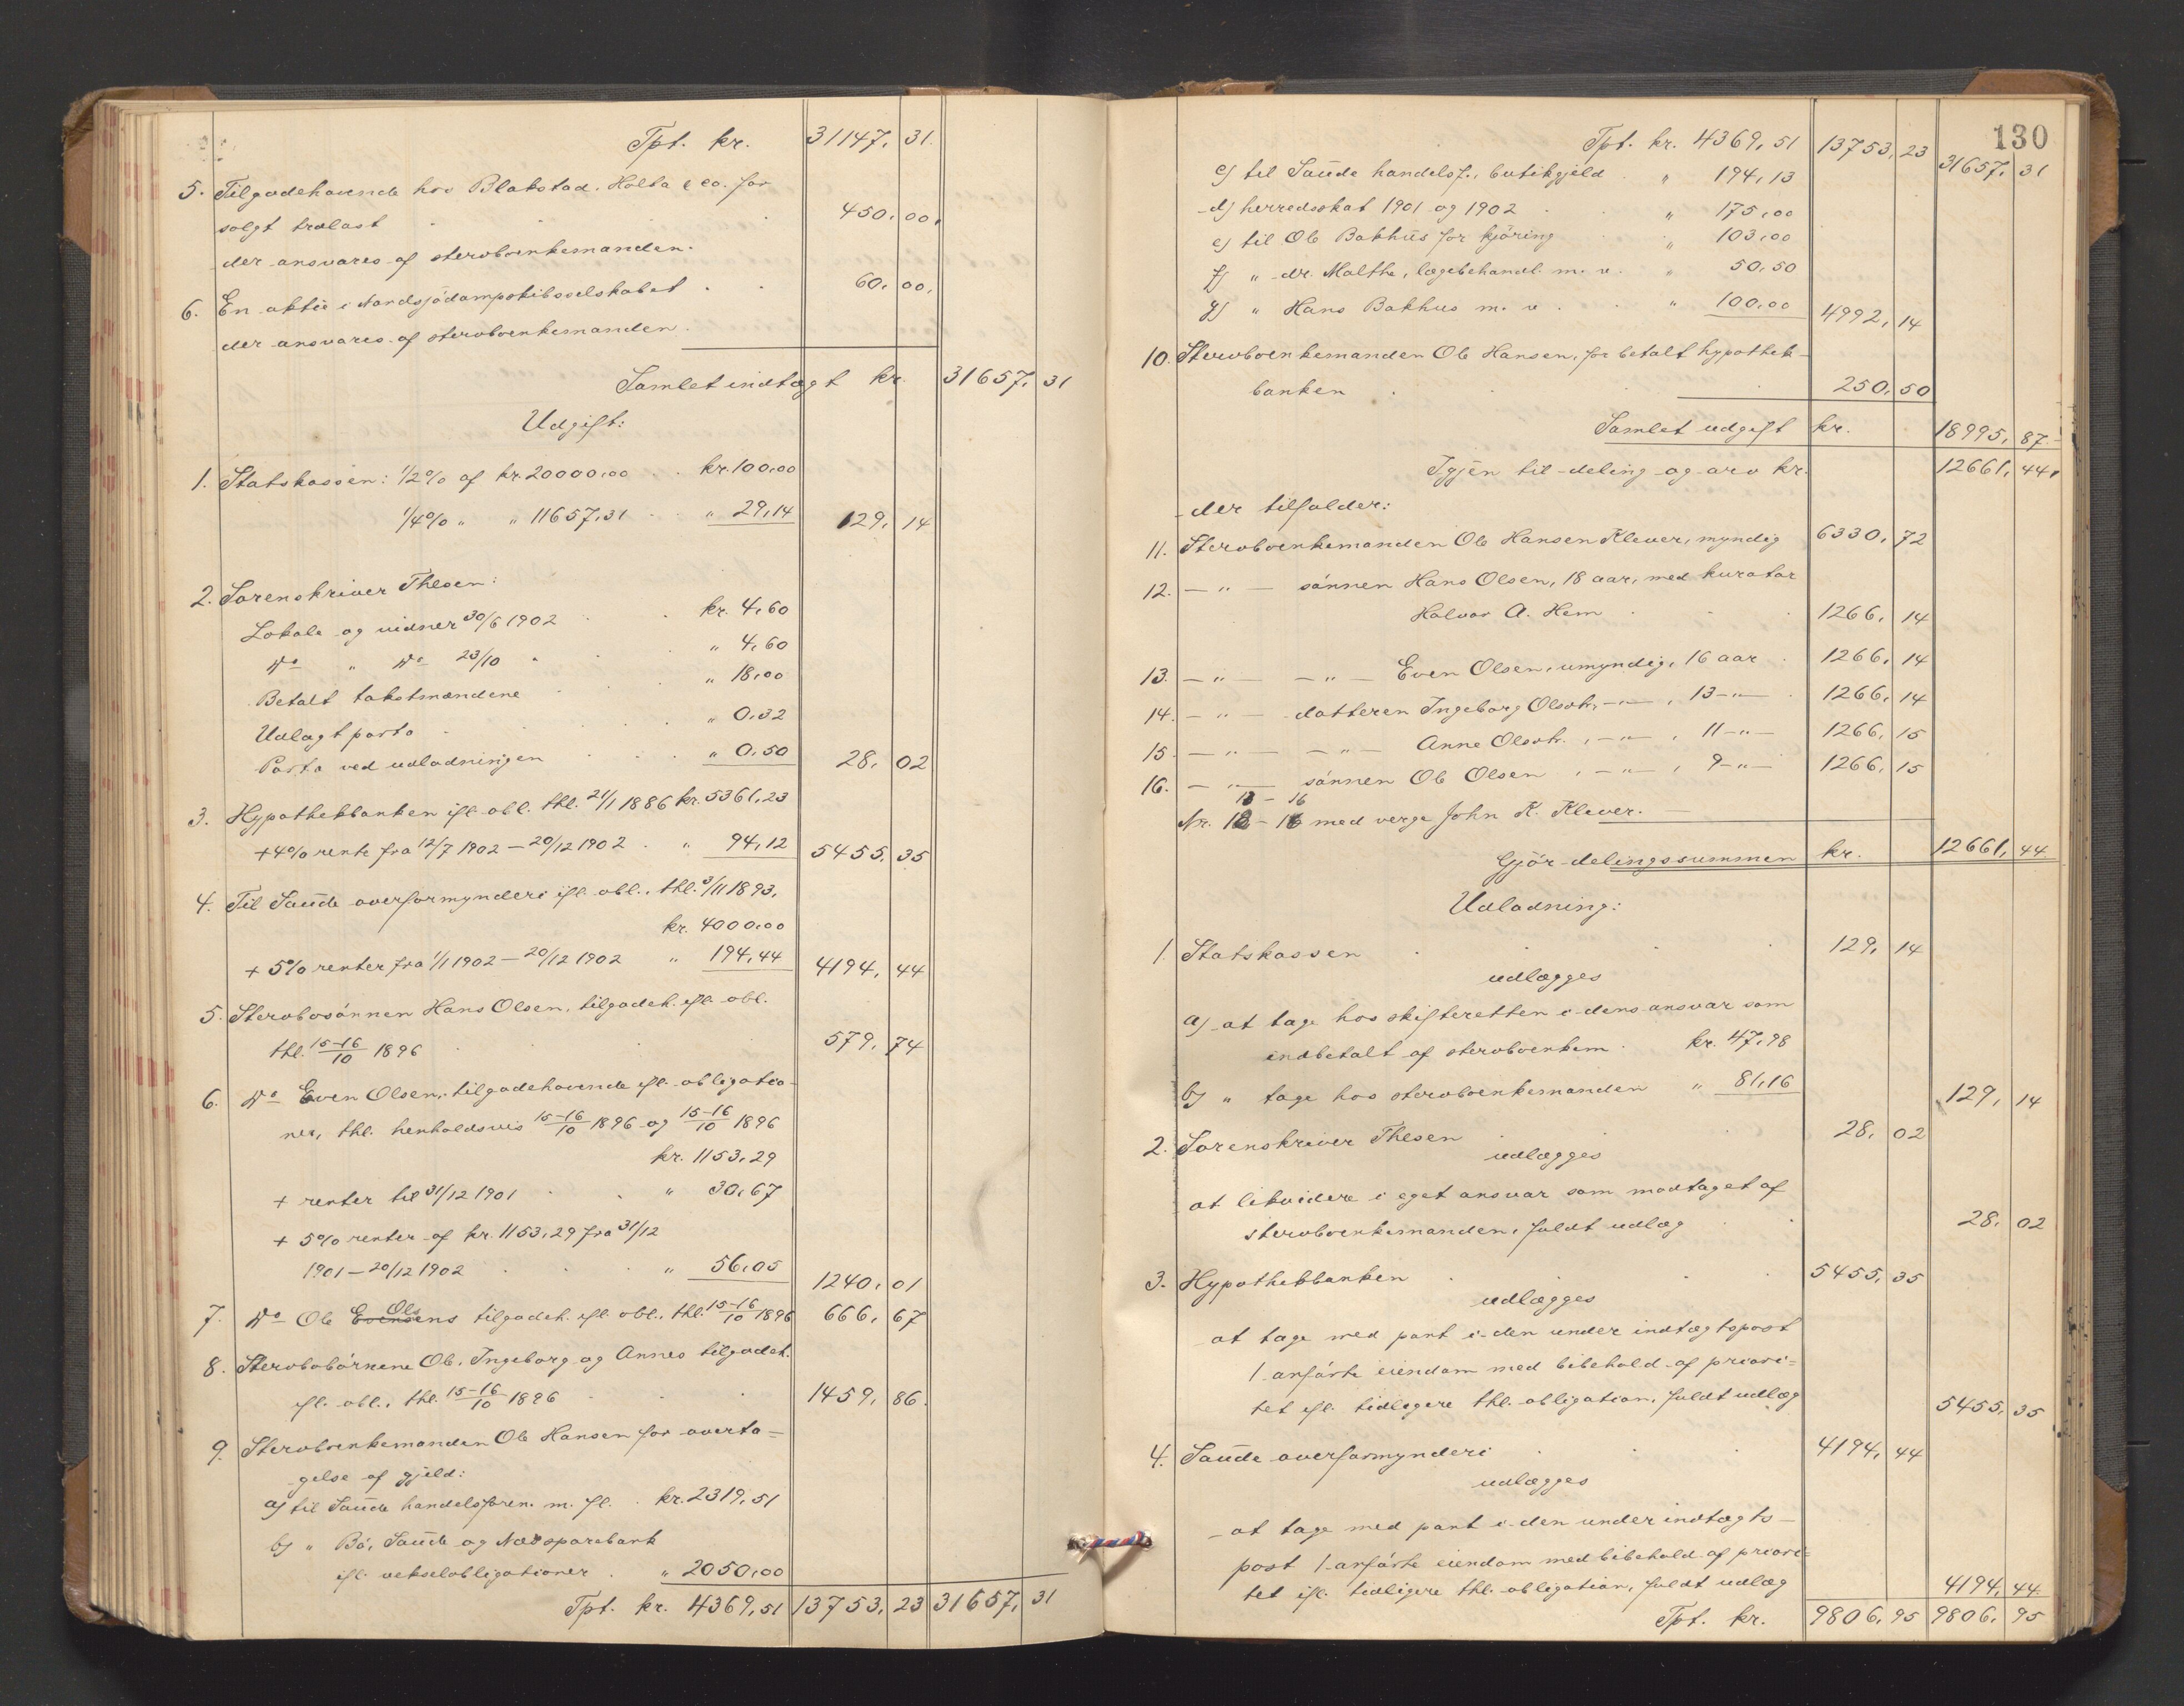 Tpt. kr. 31147, 31.
5. Tilgodehavende hos Blakstad, Holta & co. for
solgt trælast . 450, 00,
der ansvares af sterboenkemanden.
6. En aktie i Nordsjødampskibsselskabet . . 60, 00,
der ansvares af sterboenkemanden.
Samlet indtægt kr. 31657, 31
Udgift:
1. Statskassen: 1/2% af kr. 20000,00 . . kr. 100,00
1/4% " " 11657,31 . . " 29,14 129, 14
2. Sorenskriver Thesen:
Lokale og vidner 30/6 1902 . . kr. 4,60
Do " Do 23/10 " . . " 4,60
Betalt takstmændene . . " 18,00
Udlagt porto . . " 0,32
Porto ved udlodningen . . " 0,50 28, 02
3. Hypothekbanken ifl. obl. thl. 21/1 1886 kr. 5361,23
+ 4% rente fra 12/7 1902 – 20/12 1902 . " 94,12 5455, 35
4. Til Saude overformynderi ifl. obl., thl. 3/11 1893,
kr. 4000,00
+ 5% renter fra 1/1 1902 – 20/12 1902 " 194,44 4194, 44
5. Sterbosønnen Hans Olsen, tilgodeh. ifl. obl.
thl. 15-16/10 1896 . . 579, 74
6. Do Even Olsen, tilgodehavende ifl. obligatio-
ner, thl. henholdsvis 15-16/10 1896 og 15-16/10 1896
kr. 1153,29
+ renter til 31/12 1901 . . " 30,67
+ 5% renter af kr. 1153,29 fra 31/12
1901 – 20/12 1902 . . " 56,05 1240, 01
7. Do Ole Evensens Ols tilgodeh. ifl. obl., thl. 15-16/10 1896 666, 67
8. Sterbobørnene Ole, Ingeborg og Annes tilgodeh.
ifl. obl., thl. 15-16/10 1896 . . 1459, 86.
9. Sterboenkemanden Ole Hansen for overta=
gelse af gjeld:
a) til Saude handelsforen. m. fl. . kr. 2319,51
b) " Bø, Saude og Nes sparebank
ifl. vekselobligationer . " 2050,00
Tpt. kr. 4369,51 13753, 23 31657, 31
130
Tpt. kr. 4369,51 13753, 23 31657, 31
c) til Saude handelsf., butikgjeld . " 194,13
d) herredsskat 1901 og 1902 . . " 175,00
e) til Ole Bakhus for kjøring . . " 103,00
f) " dr. Malthe, lægebehandl. m. v. . " 50,50
g) " Hans Bakhus m. v. . . " 100,00 4992, 14
10. Sterboenkemanden Ole Hansen, for betalt hypothek-
banken . . 250, 50
Samlet udgift kr. 18995, 87.
Igjen til deling og arv kr. 12661, 44,
der tilfalder:
11. Sterboenkemanden Ole Hansen Klever, myndig 6330, 72
12. – " – sønnen Hans Olsen, 18 aar, med kurator
Halvor A. Hem . . 1266, 14
13. – " – – " – Even Olsen, umyndig, 16 aar . 1266, 14
14. – " – datteren Ingeborg Olsdtr., – " – , 13 – " – . 1266, 14
15. – " – – " – Anne Olsdtr. , – " – , 11 – " – 1266, 15
16. – " – sønnen Ole Olsen , – " – , 9 – " – 1266, 15
13 – 16
Nr. 12 – 16 med verge John K. Klever.
Gjør delingssummen kr. 12661, 44
Udlodning:
1. Statskassen . . 129, 14
udlægges
a) at tage hos skifteretten i dens ansvar som
indbetalt af sterboenkem. . kr. 47,98
b) " tage hos sterboenkemanden " 81,16 129, 14
2. Sorenskriver Thesen . . 28, 02
udlægges
at likvidere i eget ansvar som modtaget af
sterboenkemanden, fuldt udlæg . 28, 02
3. Hypothekbanken . . 5455, 35
udlægges
at tage med pant i den under indtægtspost
1 anførte eiendom med bibehold af priori=
tet ifl. tidligere thl. obligation, fuldt udlæg 5455, 35
4. Saude overformynderi . . 4194, 44
udlægges
at tage med pant i den under indtægts-
post 1 anførte eiendom med bibehold af priori=
tet ifl. tidligere thl. obligation, fuldt udlæg 4194, 44
Tpt. kr. 9806, 95 9806, 95